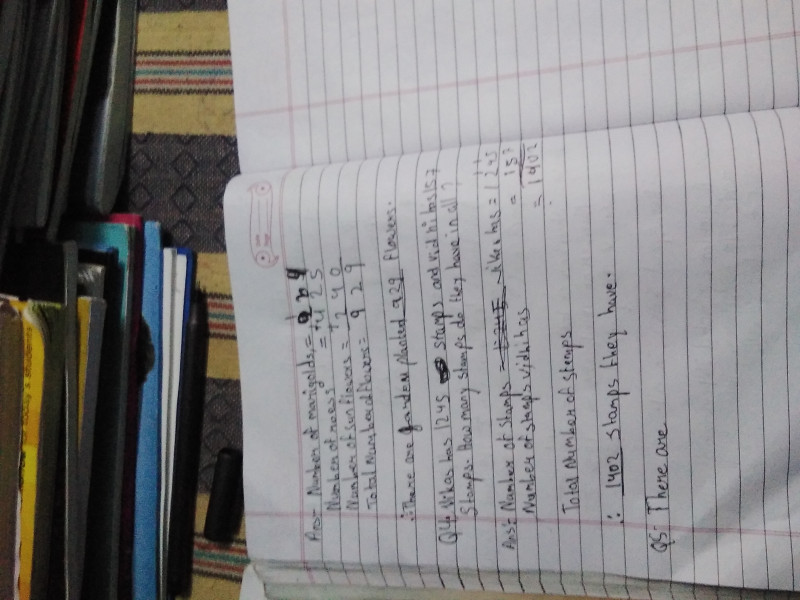 Ans- Number of marigolds = 264
Number of roses = +425
Number of sunflowers = +240
Total number of flowers = 929
∴ There are garden planted 929 flowers.
Q4. Vikas has 1245 stamps and vidhi has 157
Stamps. How many stamps do they have in all?
Ans- Number of Stamps vikas has = 1245
Number of stamps vidhi has = 157
Total Number of Stamps = 1402
∴ 1402 stamps they have.
Q5- There are